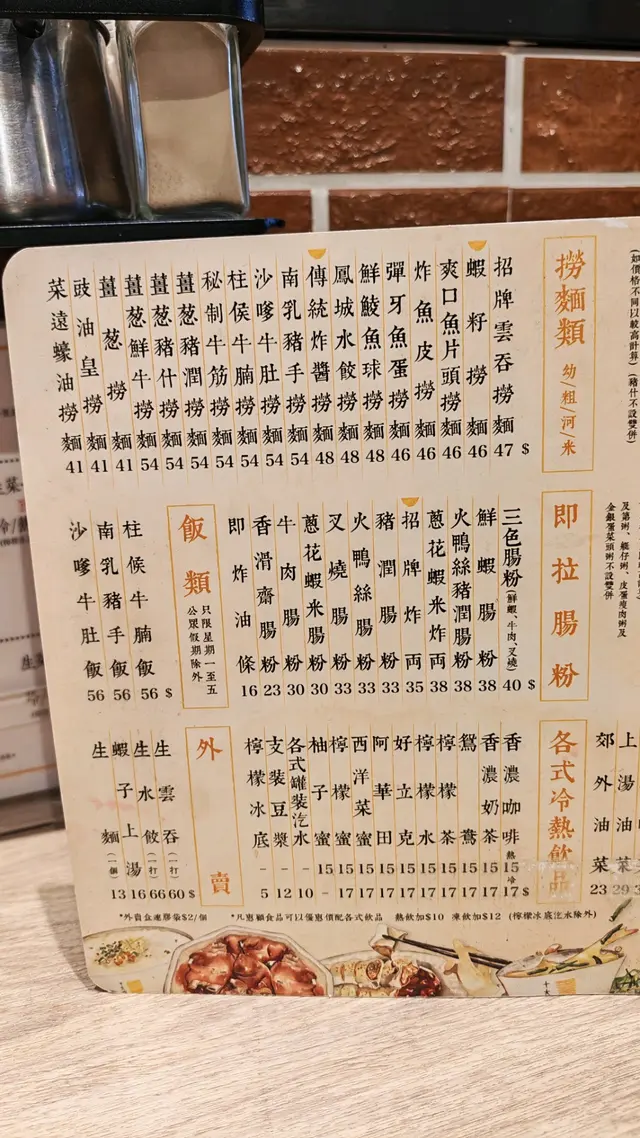 (如價格不同以較高計算)(豬什不設雙併)
撈麵類 幼/粗/河/米
招牌雲吞撈麵 47 $
蝦籽撈麵 46
爽口魚片頭撈麵 46
炸魚皮撈麵 46
彈牙魚蛋撈麵 46
鮮鯪魚球撈麵 48
鳳城水餃撈麵 48
傳統炸醬撈麵 48
南乳豬手撈麵 54
沙嗲牛肚撈麵 54
柱侯牛腩撈麵 54
秘制牛筋撈麵 54
薑葱豬潤撈麵 54
薑葱豬什撈麵 54
薑葱鮮牛撈麵 54
薑葱撈麵 41
豉油皇撈麵 41
菜遠蠔油撈麵 41
及第粥、艇仔粥、皮蛋瘦肉粥及
金銀蛋菜頭粥不設雙併
即拉腸粉
三色腸粉(鮮蝦、牛肉、叉燒) 40 $
鮮蝦腸粉 38
火鴨絲豬潤腸粉 38
蔥花蝦米炸両 38
招牌炸両 35
豬潤腸粉 33
火鴨絲腸粉 33
叉燒腸粉 33
蔥花蝦米腸粉 30
牛肉腸粉 30
香滑齋腸粉 23
即炸油條 16
飯類 只限星期一至五 公眾假期除外
柱侯牛腩飯 56 $
南乳豬手飯 56
沙嗲牛肚飯 56
上湯油菜 29
郊外油菜 23
各式冷熱飲品
香濃咖啡 熱15 冷17 $
香濃奶茶 15 17
鴛鴦 15 17
檸檬茶 15 17
檸檬水 15 17
好立克 15 17
阿華田 15 17
西洋菜蜜 15 17
檸檬蜜 15 17
柚子蜜 15 -
各式罐裝汽水 - 10
支裝豆漿 - 12
檸檬冰底 - 5
外賣
生雲吞(一打) 60 $
生水餃(一打) 66
蝦子上湯 16
生麵(一個) 13
*外賣盒連膠袋$2/個 *凡惠顧食品可以優惠價配各式飲品 熱飲加$10 凍飲加$12 (檸檬冰底汽水除外)